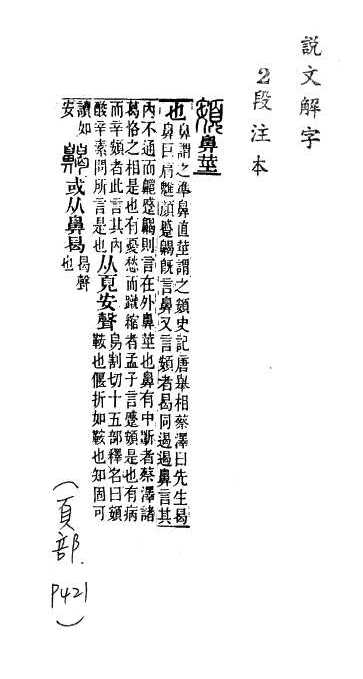 説文解字
2段注本
頞鼻莖
也鼻謂之準鼻直莖謂之頞史記唐舉相蔡澤曰先生曷
鼻巨肩魋顏蹙齃旣言鼻又言頞者曷同遏遏鼻言其
內不通而齃蹙齃則言在外鼻莖也鼻有中斷者蔡澤諸
葛恪之相是也有憂愁而蹴縮者孟子言蹙頞是也有病
而辛頞者此言其內
酸辛素問所言是也从頁安聲烏割切十五部釋名曰頞
鞍也偃折如鞍也知固可
讀如
安 齃或从鼻曷曷聲
也
(頁部.
P421)